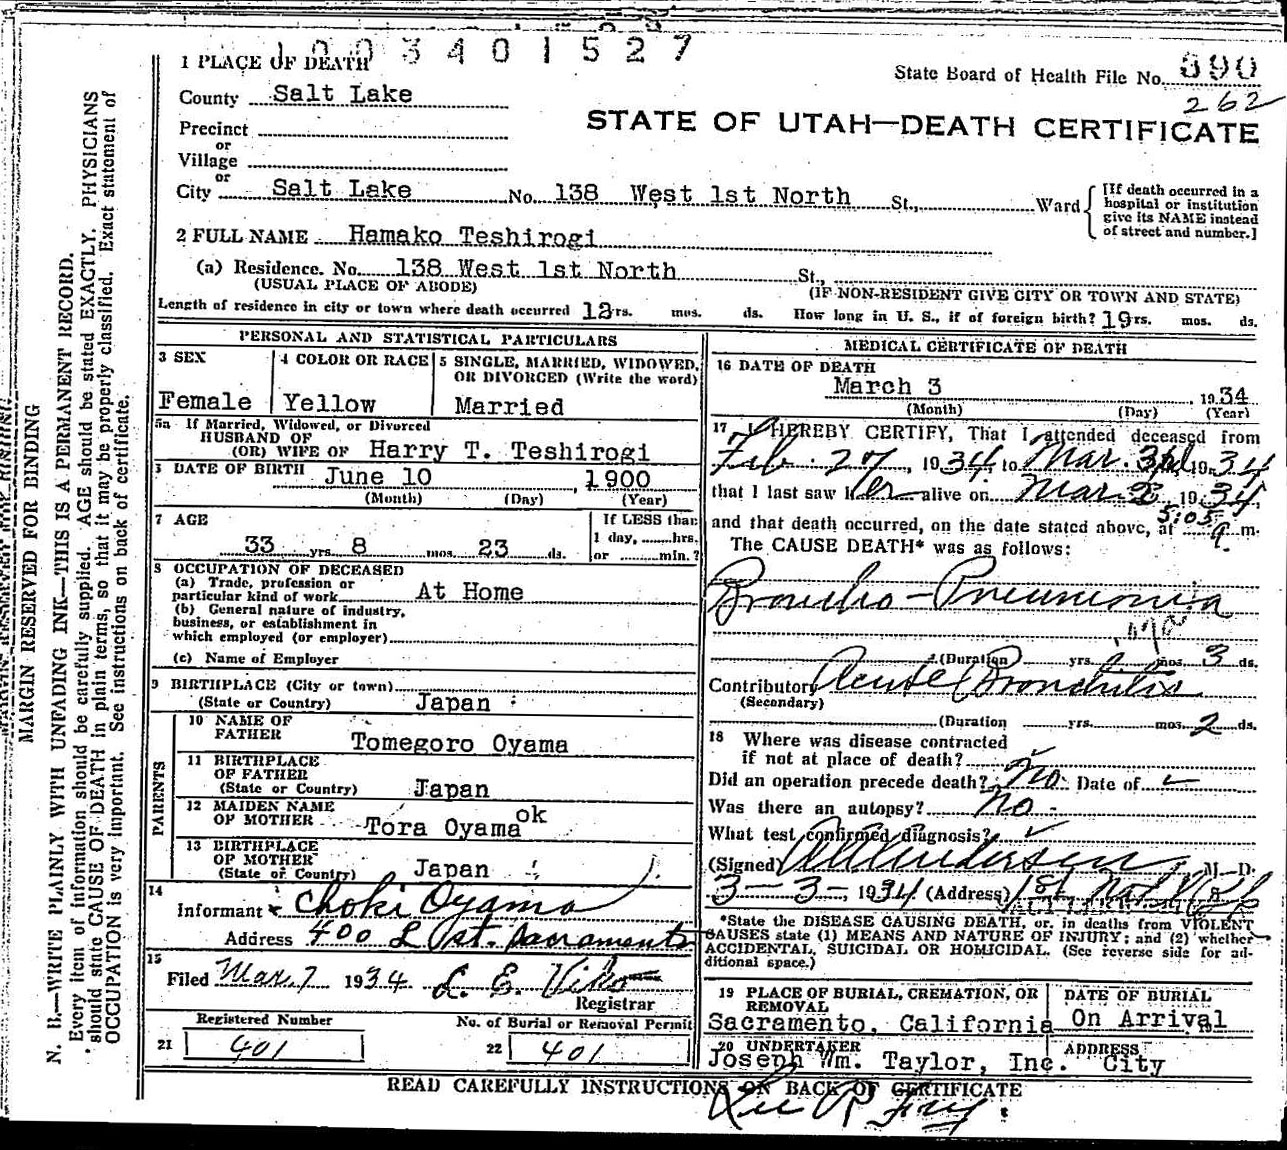 1003401527
1 PLACE OF DEATH
State Board of Health File No. 390
262
County Salt Lake
STATE OF UTAH—DEATH CERTIFICATE
Precinct
or
Village
or
City Salt Lake No. 138 West 1st North St., Ward
[If death occurred in a hospital or institution give its NAME instead of street and number.]
2 FULL NAME Hamako Teshirogi
(a) Residence. No. 138 West 1st North St.,
(USUAL PLACE OF ABODE) (IF NON-RESIDENT GIVE CITY OR TOWN AND STATE)
Length of residence in city or town where death occurred 12 rs. mos. ds. How long in U. S., if of foreign birth? 19 rs. mos. ds.
PERSONAL AND STATISTICAL PARTICULARS
3 SEX
Female
4 COLOR OR RACE
Yellow
5 SINGLE, MARRIED, WIDOWED, OR DIVORCED (Write the word)
Married
5a If Married, Widowed, or Divorced
HUSBAND OF
(OR) WIFE OF Harry T. Teshirogi
DATE OF BIRTH June 10, 1900
(Month) (Day) (Year)
7 AGE
33 yrs. 8 mos. 23 ds.
If LESS than
1 day, hrs.
or min.?
8 OCCUPATION OF DECEASED
(a) Trade, profession or
particular kind of work At Home
(b) General nature of industry,
business, or establishment in
which employed (or employer)
(c) Name of Employer
9 BIRTHPLACE (City or town)
(State or Country) Japan
PARENTS
10 NAME OF
FATHER
Tomegoro Oyama
11 BIRTHPLACE
OF FATHER
(State or Country) Japan
12 MAIDEN NAME
OF MOTHER Tora Oyama ok
13 BIRTHPLACE
OF MOTHER
(State or Country) Japan
14
Informant Choki Oyama
Address 400 L St. Sacramento
15
Filed Mar. 7 1934 L. E. Viko
Registrar
Registered Number
21 401
No. of Burial or Removal Permit
22 401
MEDICAL CERTIFICATE OF DEATH
16 DATE OF DEATH
March 3 1934
(Month) (Day) (Year)
17 I HEREBY CERTIFY, That I attended deceased from
Feb. 27, 1934, to Mar. 3rd, 1934
that I last saw her alive on Mar. 1934
and that death occurred, on the date stated above, at 5:05 a. m.
The CAUSE DEATH* was as follows:
Broncho-Pneumonia
(Duration yrs. mos. 3 ds.
Contributory Acute Bronchitis
(Secondary)
(Duration yrs. mos. 2 ds.
18 Where was disease contracted
if not at place of death?
Did an operation precede death? No. Date of
Was there an autopsy? No
What test confirmed diagnosis?
(Signed) Andersen, M. D.
3-3-, 1934 (Address) 1st
*State the DISEASE CAUSING DEATH, or, in deaths from VIOLENT
CAUSES state (1) MEANS AND NATURE OF INJURY; and (2) whether
ACCIDENTAL, SUICIDAL OR HOMICIDAL. (See reverse side for ad-
ditional space.)
19 PLACE OF BURIAL, CREMATION, OR
REMOVAL
Sacramento, California
DATE OF BURIAL
On Arrival
20 UNDERTAKER
Joseph Wm. Taylor, Inc.
ADDRESS
City
READ CAREFULLY INSTRUCTIONS ON BACK OF CERTIFICATE
MARGIN RESERVED FOR BINDING
N. B.—WRITE PLAINLY WITH UNFADING INK—THIS IS A PERMANENT RECORD.
Every item of information should be carefully supplied. AGE should be stated EXACTLY. PHYSICIANS
should state CAUSE OF DEATH in plain terms, so that it may be properly classified. Exact statement of
OCCUPATION is very important. See instructions on back of certificate.